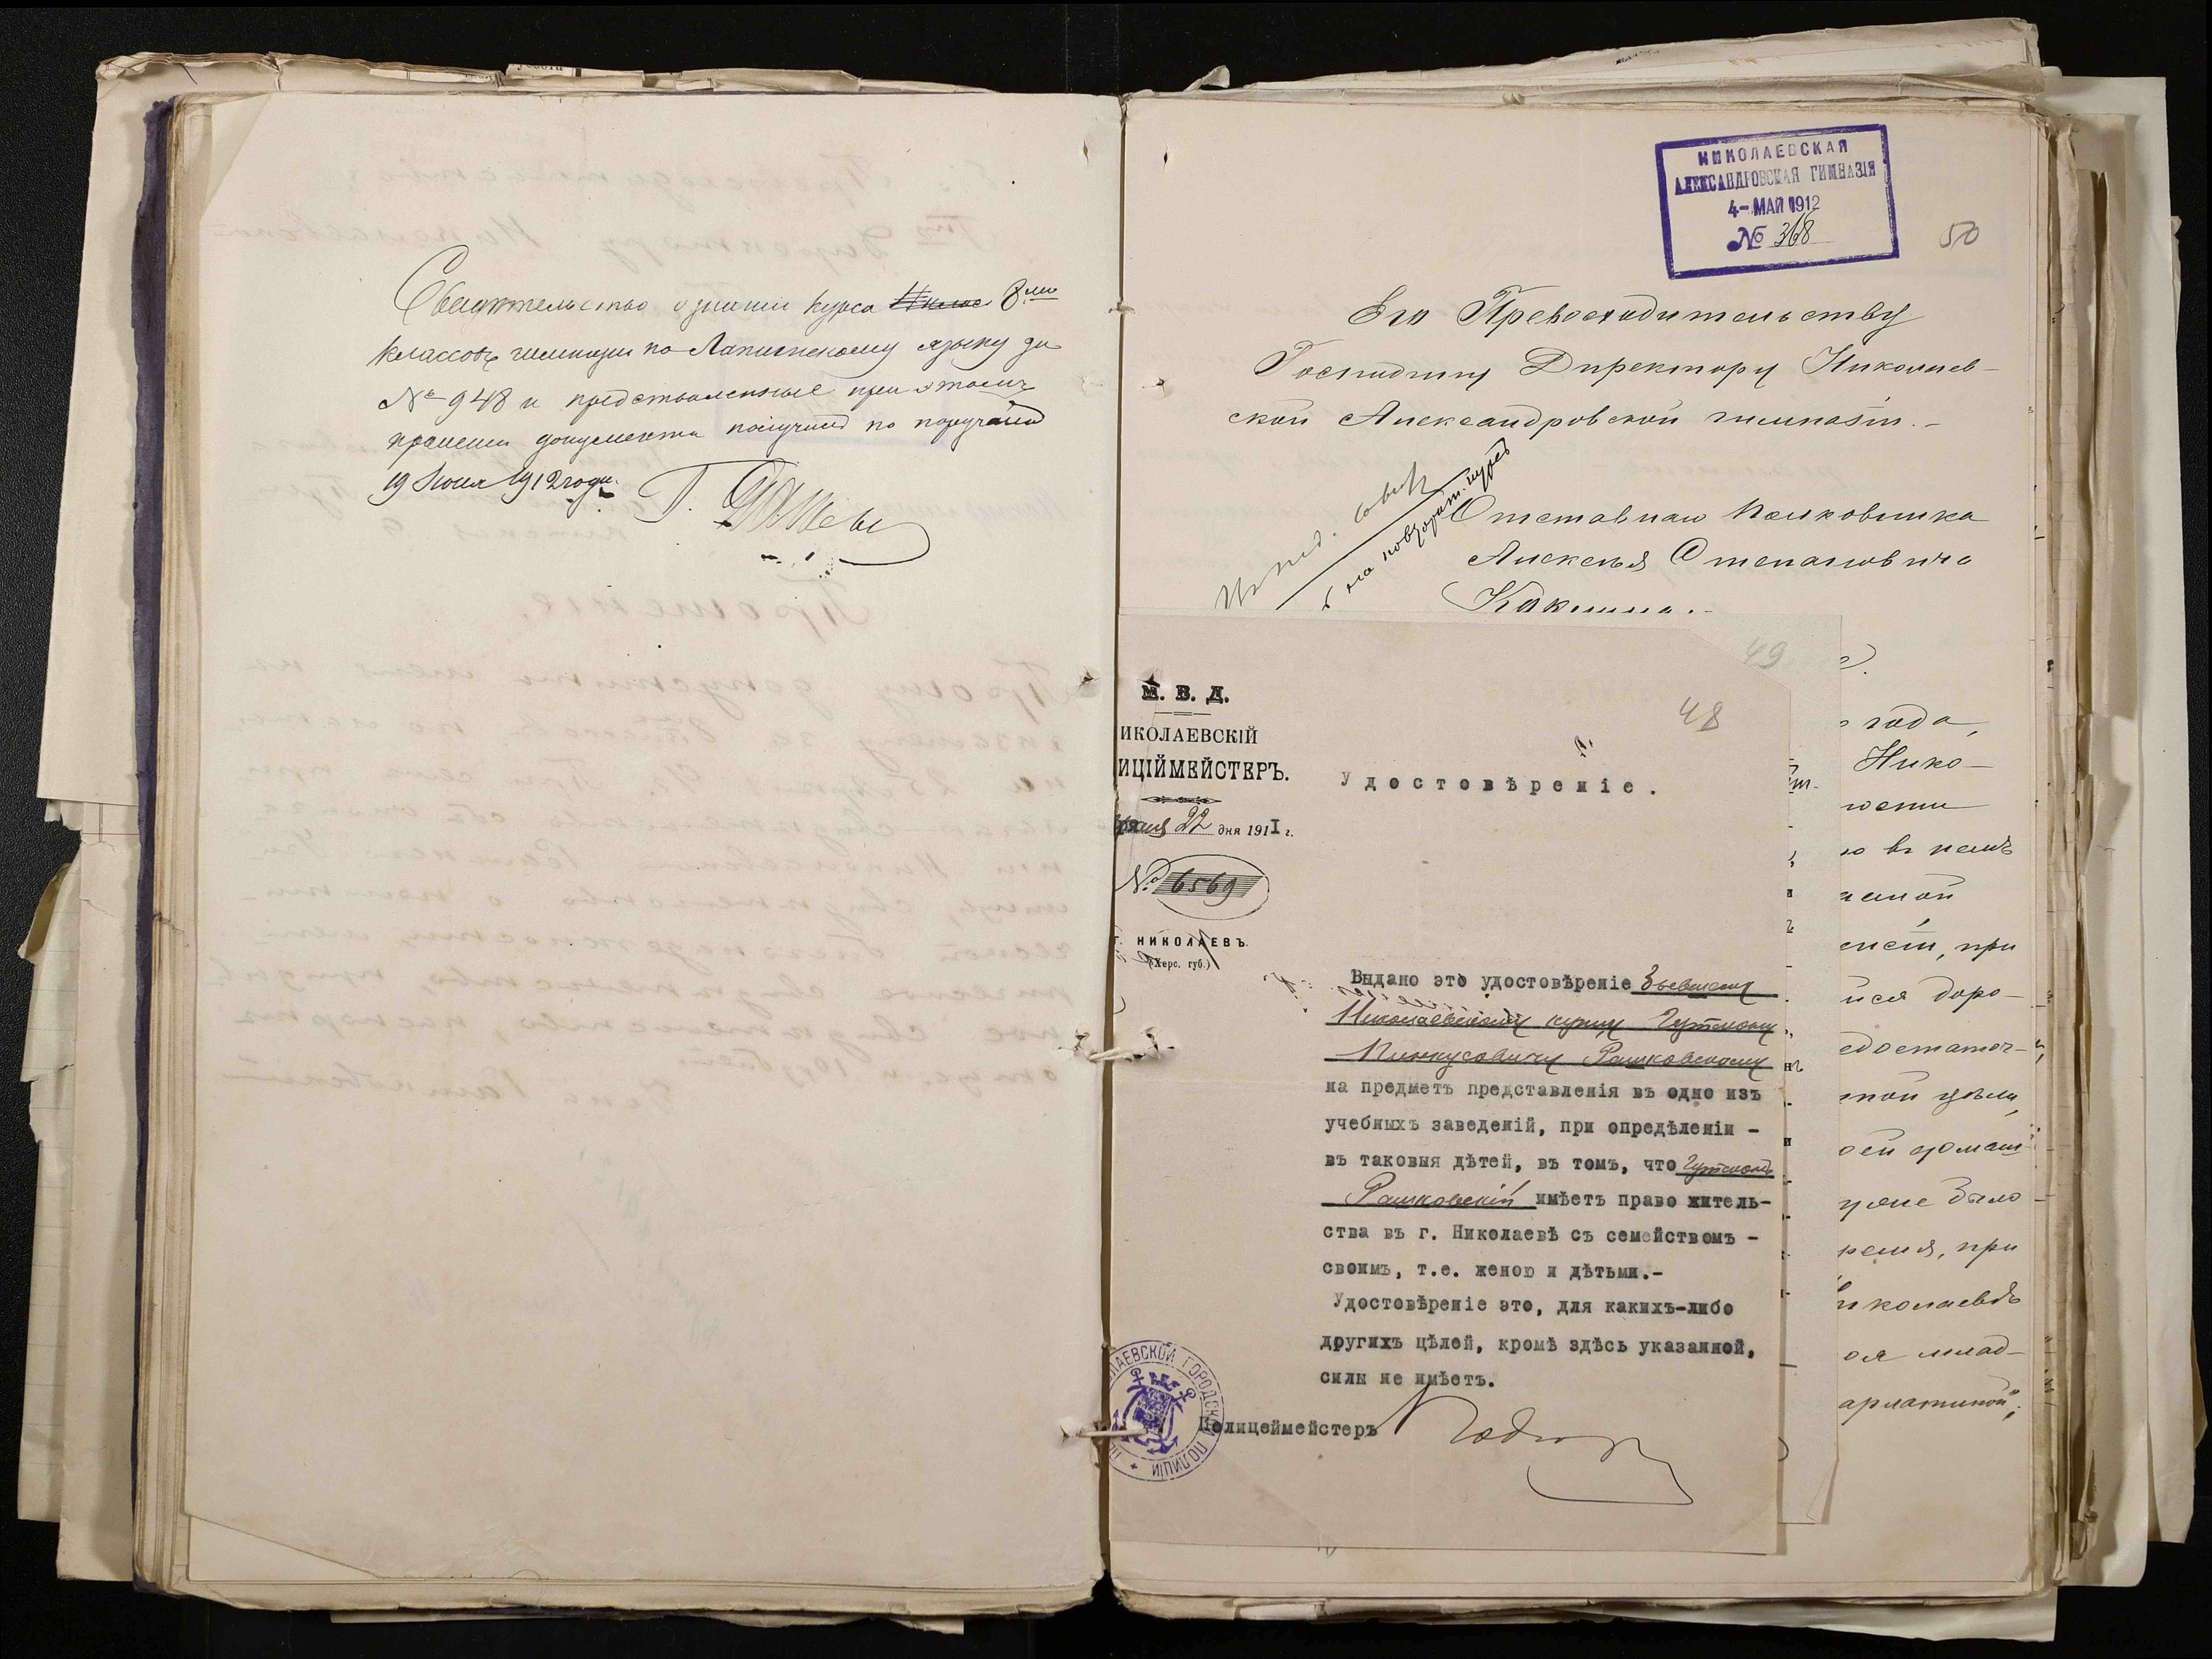 Свидѣтельство о знаніи курса 8ми
классовъ гимназіи по Латинскому языку за
№ 948 и представленные при этомъ
прошеніи документы получилъ по порученію
19 Іюня 1912 года.
НИКОЛАЕВСКАЯ
АЛЕКСАНДРОВСКАЯ ГИМНАЗІЯ
4 - МАЙ 1912
№ 368
50
Его Превосходительству
Господину Директору Николаев-
ской Александровской гимназіи.-
Отставнаго Полковника
Алексѣя Степановича
Какшина.-
49
48
М. В. Д.
ИКОЛАЕВСКІЙ
ИЦІЙМЕЙСТЕРЪ.
22 дня 1911 г.
№ 6569
г. НИКОЛАЕВЪ.
(Херс. губ.)
Удостовѣреніе.
Выдано это удостовѣреніе бывшему
Николаевскому купцу Гутману
Пинкусовичу Рашковскому
на предметъ представленія въ одно изъ
учебныхъ заведеній, при опредѣленіи -
въ таковыя дѣтей, въ томъ, что Гутманъ
Рашковскій имѣетъ право житель-
ства въ г. Николаевѣ съ семействомъ -
своимъ, т.е. женою и дѣтьми.-
Удостовѣреніе это, для какихъ-либо
другихъ цѣлей, кромѣ здѣсь указанной,
силы не имѣетъ.
Полицеймейстеръ
ЛАЕВСКОЙ ГОРОДСКОЙ ПОЛИЦІИ
года,
Нико-
ности
въ немъ
при
йся доро-
едостаточ-
ной цѣли,
ней домаш-
уже было
ремя, при
иколаевѣ
ся млад-
арлатиной,